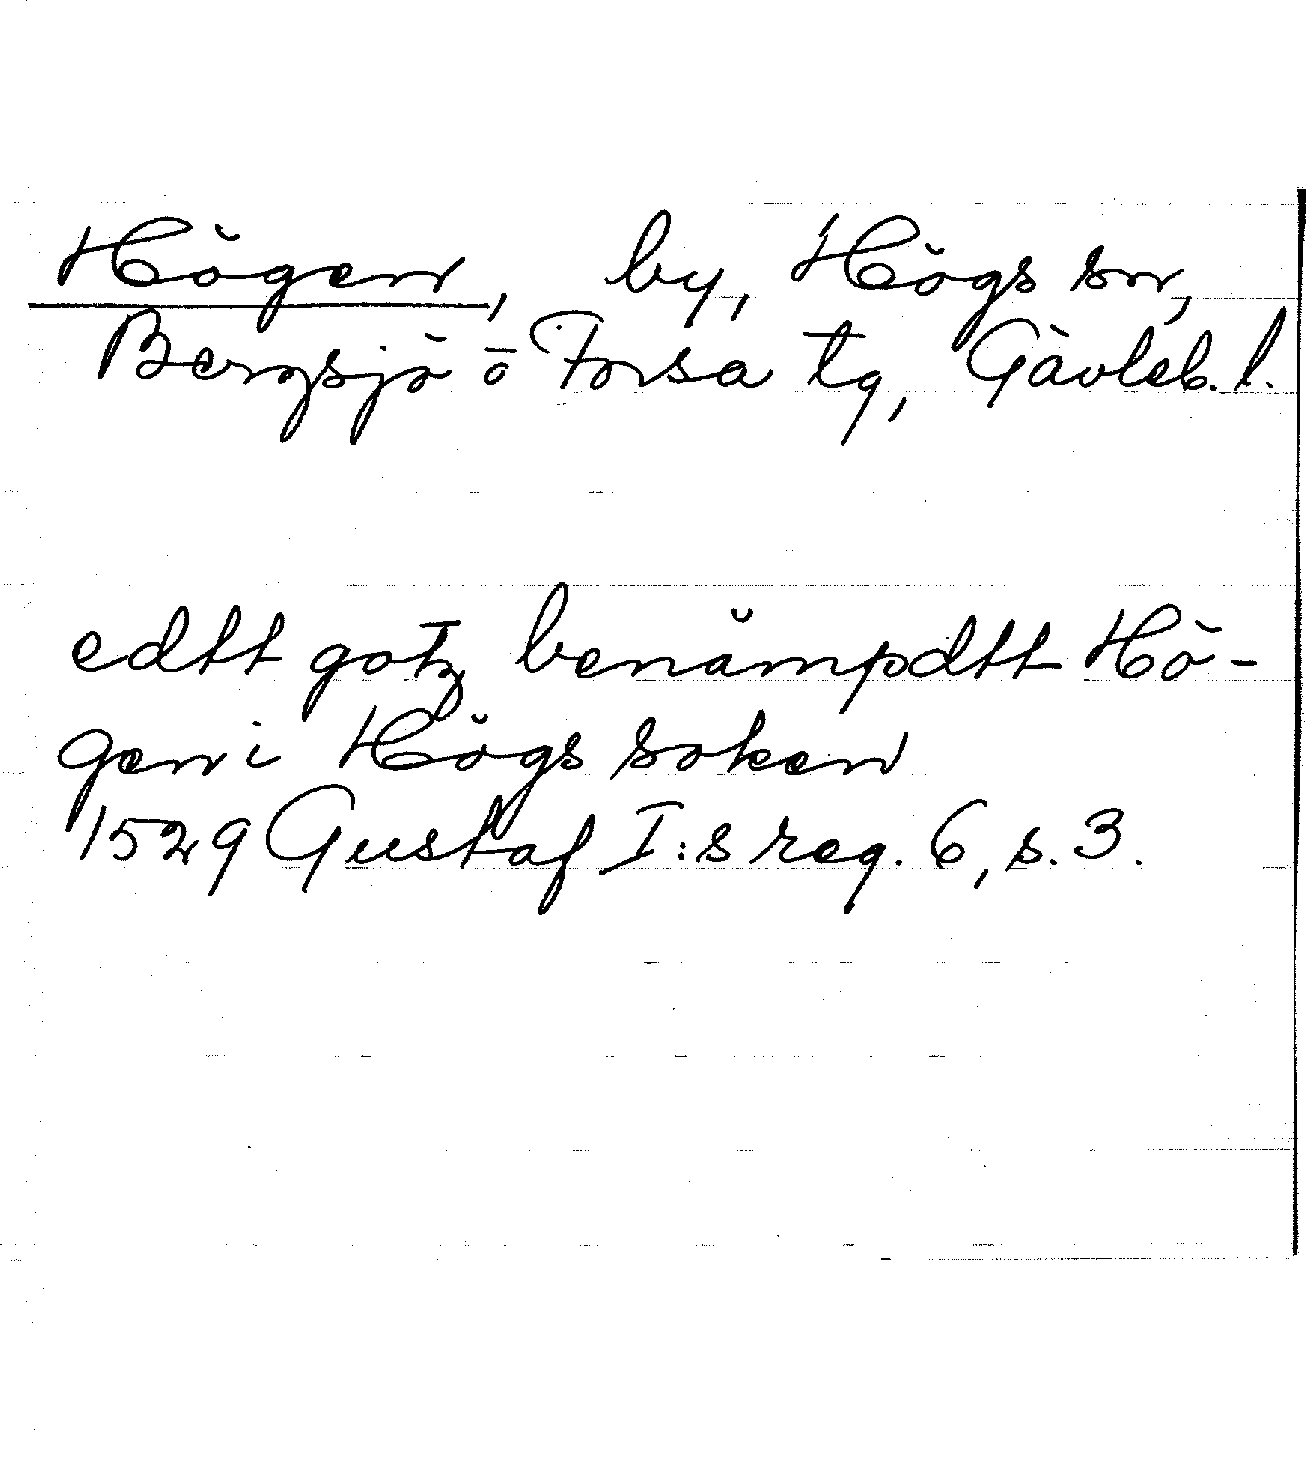 Högen, by, Högs sn,
Bergsjö o Forsa tg, Gävleb. l.
edtt gotz benämpdtt Hö-
gen i Högs soken
1529 Gustaf I:s reg. 6, s. 3.